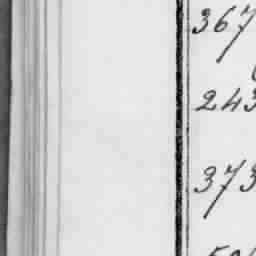 367
243
373